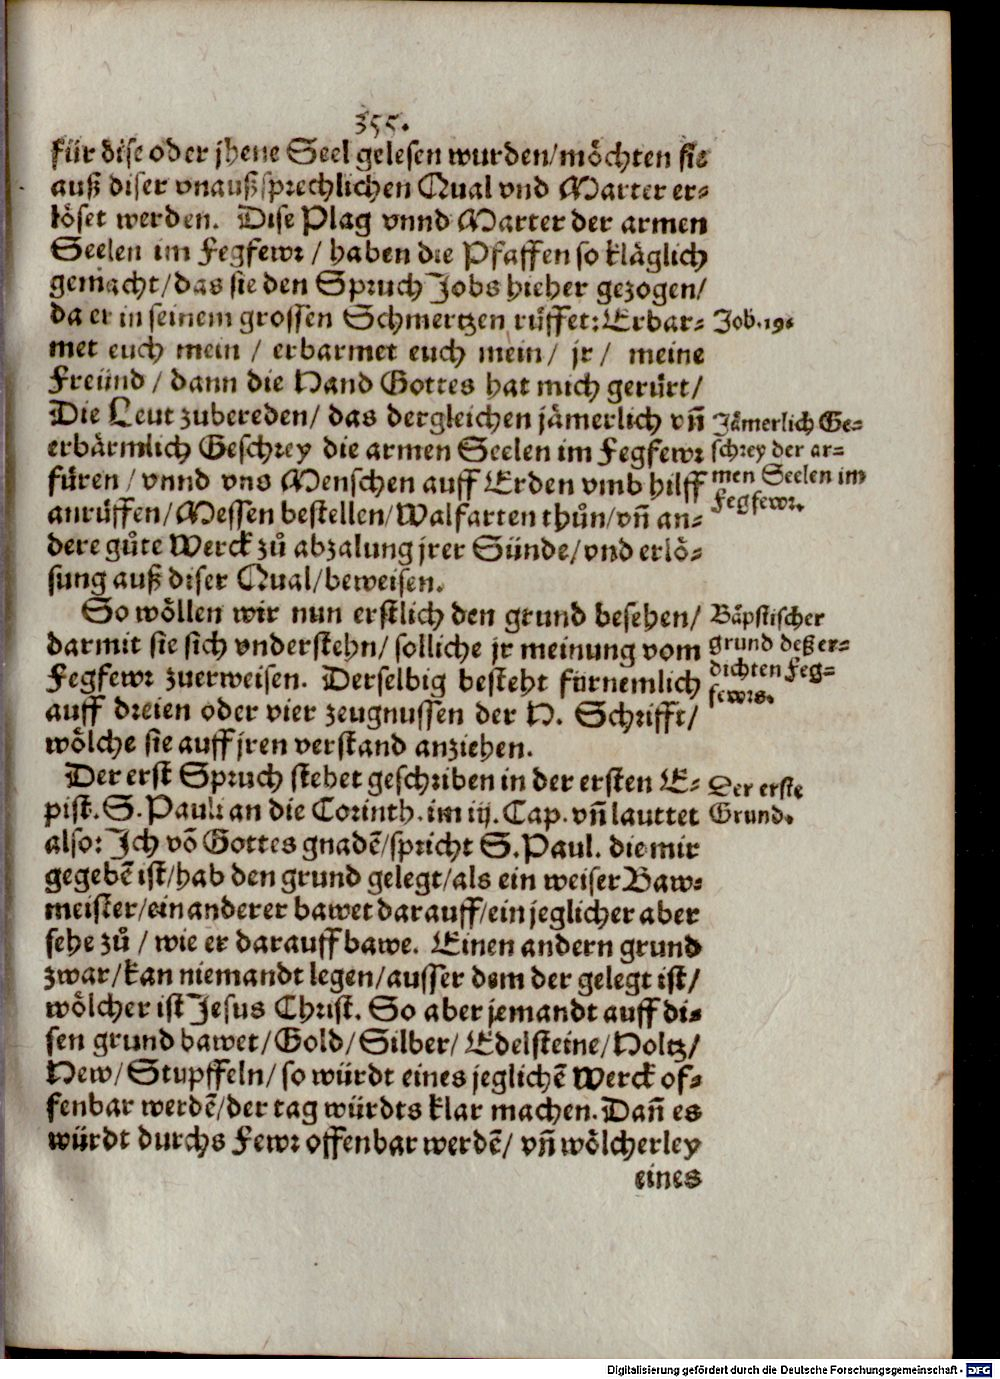 355.
für dise oder jhene Seel gelesen wurden/möchten sie
auß diser vnaußsprechlichen Qual vnd Marter er-
löset werden. Dise Plag vnnd Marter der armen
Seelen im Fegfewr / haben die Pfaffen so kläglich
gemacht/das sie den Spruch Jobs hieher gezogen/
da er in seinem grossen Schmertzen rüffet: Erbar-
Job.19.
met euch mein / erbarmet euch mein/ jr/ meine
Freünd / dann die Hand Gottes hat mich gerürt/
Die Leut zubereden/ das dergleichen jämerlich vñ
erbärmlich Geschrey die armen Seelen im Fegfewr
füren / vnnd vns Menschen auff Erden vmb hilff
anrüffen/Messen bestellen/Walfarten thůn/vñ an-
dere gůte Werck zů abzalung jrer Sünde/vnd erlö-
sung auß diser Qual/beweisen.
Jämerlich Ge-
schrey der ar-
men Seelen im
Fegfewr.
So wöllen wir nun erstlich den grund besehen/
darmit sie sich vnderstehn/ solliche jr meinung vom
Fegfewr zuerweisen. Derselbig besteht fürnemlich
auff dreien oder vier zeugnussen der H. Schrifft/
wölche sie auff jren verstand anziehen.
Bäpstischer
grund deß er-
dichten Feg-
fewrs.
Der erst Spruch stehet geschriben in der ersten E-
pist. S. Pauli an die Corinth. im iij. Cap. vñ lauttet
also: Ich võ Gottes gnadẽ/spricht S. Paul. die mir
gegebẽ ist/hab den grund gelegt/als ein weiser Baw-
meister/ein anderer bawet darauff/ein jeglicher aber
sehe zů / wie er darauff bawe. Einen andern grund
zwar/kan niemandt legen/ausser dem der gelegt ist/
wölcher ist Jesus Christ. So aber jemandt auff di-
sen grund bawet/Gold/Silber/ Edelsteine/Holtz/
Hew/Stupffeln/ so würdt eines jeglichẽ Werck of-
fenbar werdẽ/der tag würdts klar machen. Dañ es
würdt durchs Fewr offenbar werdẽ/ vñ wölcherley
Der erste
Grund.
eines
Digitalisierung gefördert durch die Deutsche Forschungsgemeinschaft - DFG